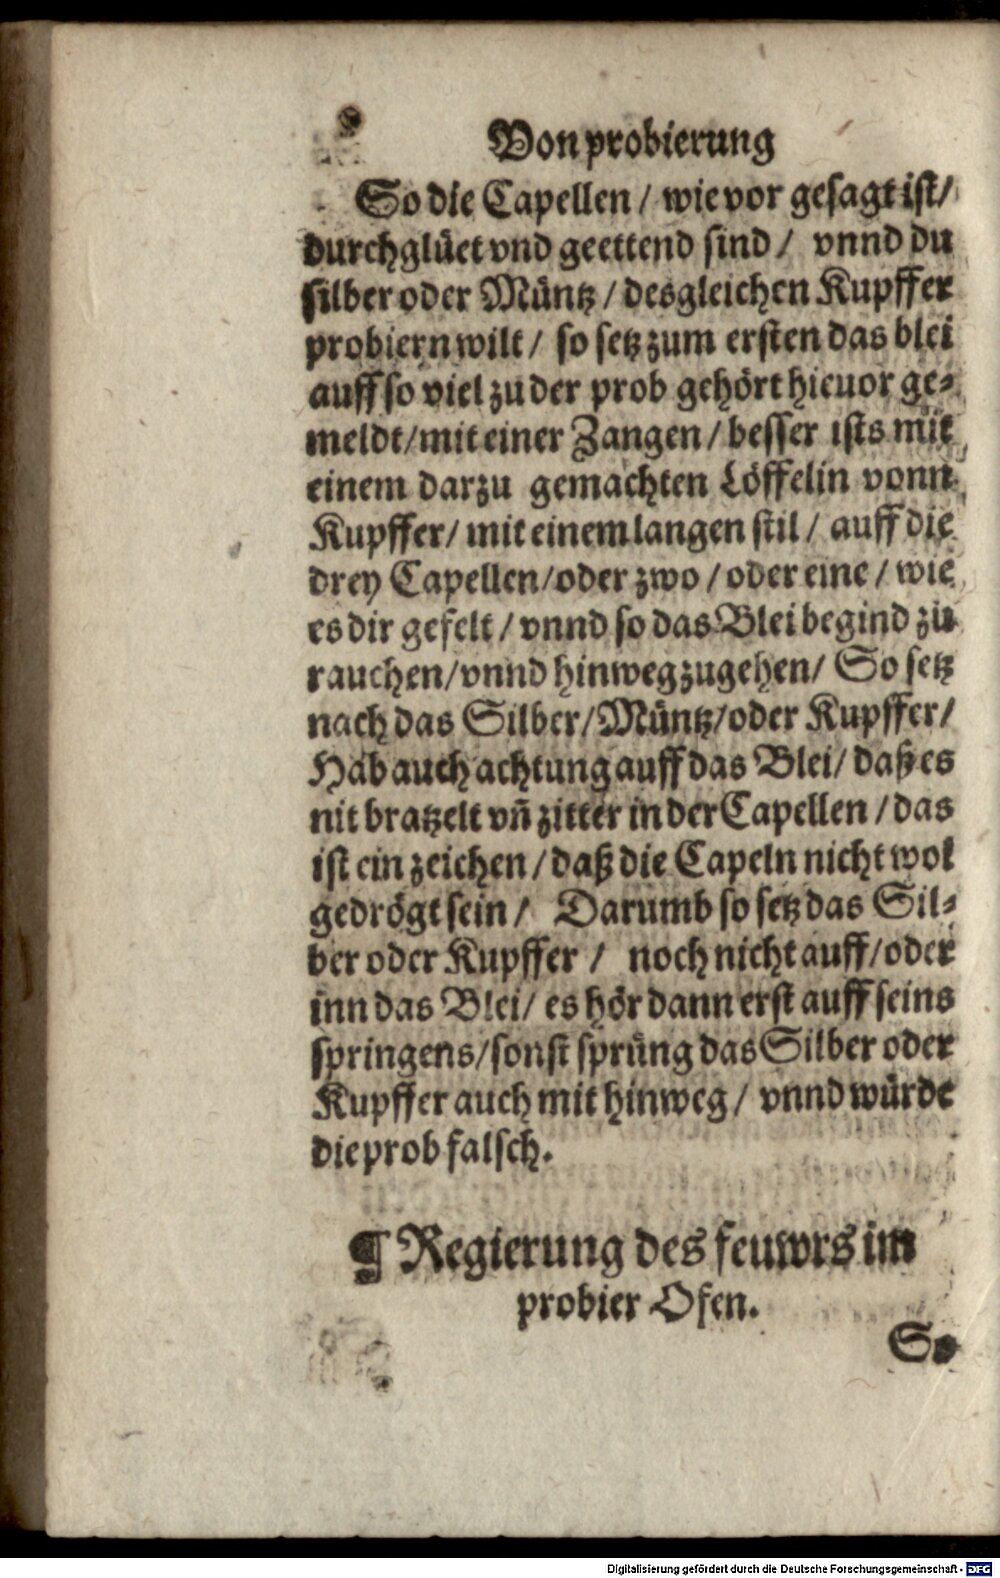 Von probierung
So die Capellen / wie vor gesagt ist /
durchglüet vnd geettend sind / vnnd du
silber oder Müntz / desgleichen Kupffer
probiern wilt / so setz zum ersten das blei
auff so viel zu der prob gehört hieuor ge-
meldt / mit einer Zangen / besser ists mit
einem darzu gemachten Löffelin vonn
Kupffer / mit einem langen stil / auff die
drey Capellen / oder zwo / oder eine / wie
es dir gefelt / vnnd so das Blei begind zu
rauchen / vnnd hinweg zugehen / So setz
nach das Silber / Müntz / oder Kupffer /
Hab auch achtung auff das Blei / daß es
nit bratzelt vñ zitter in der Capellen / das
ist ein zeichen / daß die Capeln nicht wol
gedrögt sein / Darumb so setz das Sil-
ber oder Kupffer / noch nicht auff / oder
inn das Blei / es hör dann erst auff seins
springens / sonst sprüng das Silber oder
Kupffer auch mit hinweg / vnnd würde
die prob falsch.
¶ Regierung des feuwrs im
probier Ofen.
So
Digitalisierung gefördert durch die Deutsche Forschungsgemeinschaft - DFG